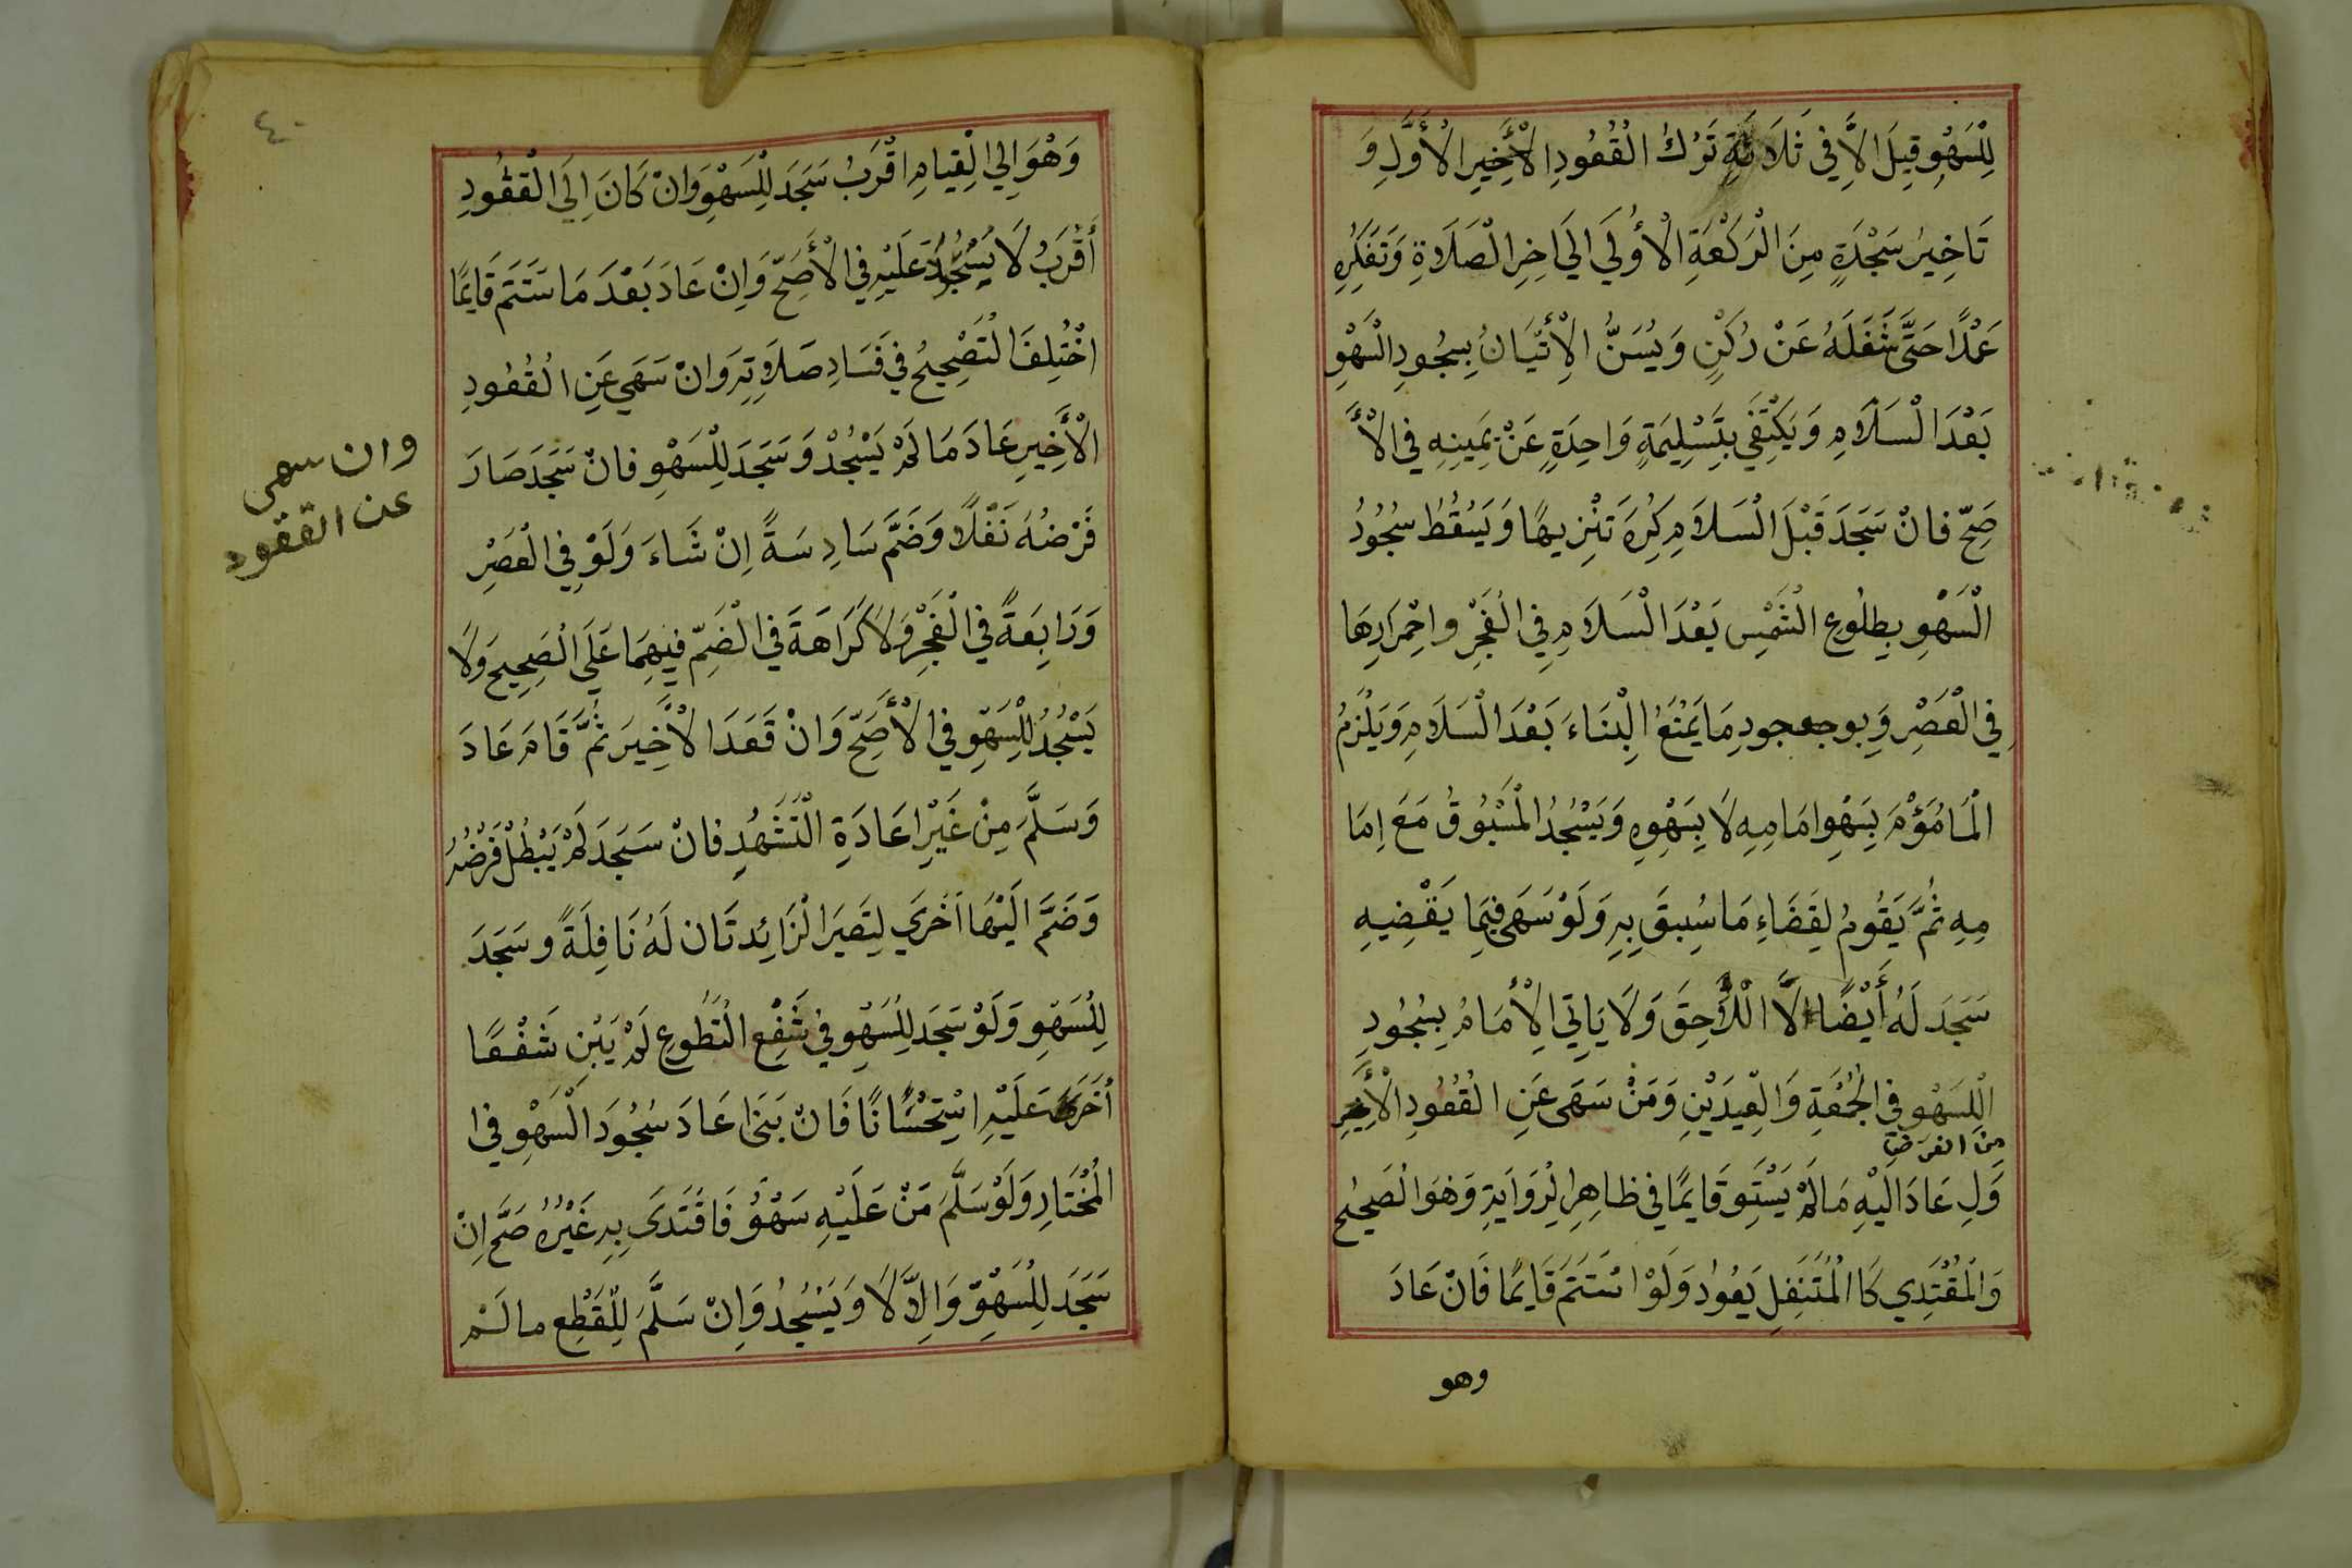 لِلْسَهْوِ قِيلَ الاَّ فِي ثَلَاثَةٍ تَرْكُ الْقُعُودِ الْأَوَّلِ وَ
تَاخِيرُ سَجْدَةٍ مِنَ الْرَكْعَةِ الْأُولَي الَي اخِرِ الْصَلَاةِ وَتَفَكِّرُهِ
عَمْدًا حَتَّى شَغَلَهُ عَنْ رُكْنٍ وَيُسَنُّ الْأِتْيَانُ بِسُجُودِ الْسَهْوِ
بَعْدَ الْسَلَامِ وَيَكْتِفَي بِتَسْلِيمَةٍ وَاحِدَةٍ عَنْ يَمِينِهِ فِي الْأَ
صَحِّ فانْ سَجَدَ قَبْلَ الْسَلَامِ كِرُهَ تَنْزِيهًا وَيَسْقُطُ سُجُودُ
الْسَهْوِ بِطِلُوعِ الْشَمْسِ بَعْدَ الْسَلَامِ فِي الْفَجْرِ واحْمِرَارِهَا
فِي الْعَصْرِ وَبِوجعجودِ مَا يَمْنَعُ الْبِنَاءَ بَعْدَ الْسَلَامِ وَيَلْزَمُ
الْمَامُؤْمَ بِسَهْوِ امَامِهِ لَا بِسَهْوِهِ وَيَسْجُدُ الْمَسْبُوقُ مَعَ اِمَا
مِهِ ثُمَّ يَقُومُ لِقَضَاءِ مَا سُبِقَ بِهِ وَلَوْ سَهَى فِيمَا يَقْضِيهِ
سَجَدَ لَهُ أَيْضًا لَا الْلَّاحِقَ وَلَا يَاتِي الْأِمَامُ بِسُجُودِ
الْلِسَهْوِ فِي الْجُمُعَةِ وَالْعِيدَيْنِ وَمَنْ سَهَى عَنِ الْقُعُودِ الْأَ
من الفرض
وَّلِ عَادَ الَيْهِ مَا لَمْ يَسْتَوِ قَايِمًا فِي ظَاهِرِ الْرِوَايَةِ وَهْوَ الْصَحِيْحُ
وَالْمُقْتَدِي كَا الْمُتَنَفِلِ يَعُودُ وَلَوْ اسْتَتَمَ قَايِمًا فَانْ عَادَ
وهو
٤٠
وَهْوَ الِي الْقِيامِ اقْرَبُ سَجَدَ لِلْسَهْوِ وَانْ كَانَ اِلَي الْقعُودِ
أَقْرَبُ لَا يَسْجُدَ عَلَيْهِ فِي الْأَصَحِّ وَاِنْ عَادَ بَعْدَ مَا سَتَتَمَ قَايِمًا
اخْتُلِفَ الْتَصْحِيحُ فِي فَسَادِ صَلَاتِهِ وَانْ سَهَي عَنِ الْقُعُودِ
الْأَخِيرِ عَادَ مَا لَمْ يَسْجُدْ وَسَجَدَ لِلْسَهْوِ فانْ سَجَدَ صَارَ
فَرْضُهُ نَفْلًا وَضَمَّ سَادِ سَةً اِنْ شَاءَ وَلَوْ فِي الْعَصْرِ
وَرَابِعَةً فِي الْفَجْرِ وَلَا كَرَاهَةَ فِي الْضَمِّ فِيهِمَا عَلَي الْصَحِيحِ وَلَا
يَسْجُدُ لِلْسَهْوِ فِي الْأَصَحِّ وَانْ قَعَدَ الْأَخِيرَ ثُمَّ قَامَ عَادَ
وَسَلَّمَ مِنْ غَيْرِ اعَادَةِ الْتَشَهُدِ فانْ سَجَدَ لَمْ يَبْطُلْ فَرْضُهُ
وَضَمَّ الَيْهَا اُخْرَي لِتَصِيرَ الْزَائِدتَان لَهُ نَافِلَةً وسَجَدَ
لِلْسَهْوِ وَلَوْ سَجَدَ لِلْسَهْوِ فِي شَفْعِ الْتَطُوعِ لَمْ يَبْنِ شَفْعًا
أُخَرَى عَلَيْهِ اسْتِحْسَانًا فَانْ بَنَى اعَادَ سُجُودَ الْسَهْوِ فِي ا
الْمُخْتَارِ وَلَوْ سَلَّمَ مَنْ عَلَيْهِ سَهْوٌ فَاقْتَدَى بِهِ غَيْرُهُ صَحَّ اِنْ
سَجَدَ لِلْسَهْوِ وَالِاَّ لَا وَيَسْجُدُ وَاِنْ سَلَّمَ لِلْقَطْعِ ما لَمْ
وان سهى
عن القعود